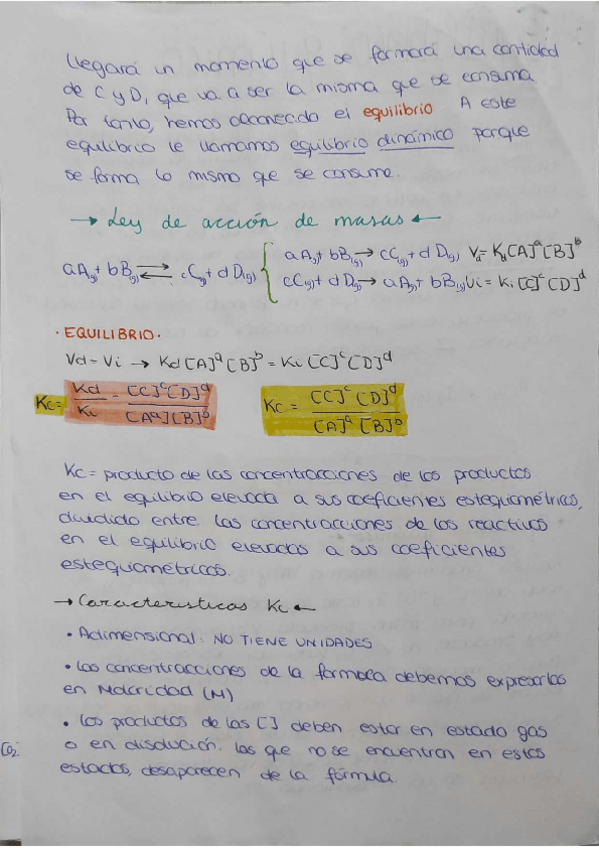 llegará un momento que se formará una cantidad
de C y D, que va a ser la misma que se consuma
Por tanto, hemos alcanzado el equilibrio. A este
equilibrio le llamamos equilibrio dinámico porque
se forma lo mismo que se consume.
→ Ley de acción de masas ←
aA(g) + bB(g) ⇄ cC(g) + dD(g) { aA(g) + bB(g) → cC(g) + dD(g) Vd = Kd [A]^a [B]^b
cC(g) + dD(g) → aA(g) + bB(g) Vi = Ki [C]^c [D]^d
· EQUILIBRIO ·
Vd = Vi → Kd [A]^a [B]^b = Ki [C]^c [D]^d
Kc = Kd/Ki = [C]^c [D]^d / [A^a] [B]^b    Kc = [C]^c [D]^d / [A]^a [B]^b
Kc = producto de las concentracciones de los productos
en el equilibrio elevada a sus coeficientes estequiométricos,
dividido entre las concentracciones de los reactivos
en el equilibrio elevados a sus coeficientes
estequiométricos.
→ Caracteristicas Kc ←
• Adimensional: NO TIENE UNIDADES
• Las concentracciones de la formula debemos expresarlas
en Molaridad (M)
• Los productos de las [] deben estar en estado gas
o en disolución. las que no se encuentran en estos
estados, desaparecen de la fórmula.
CO2